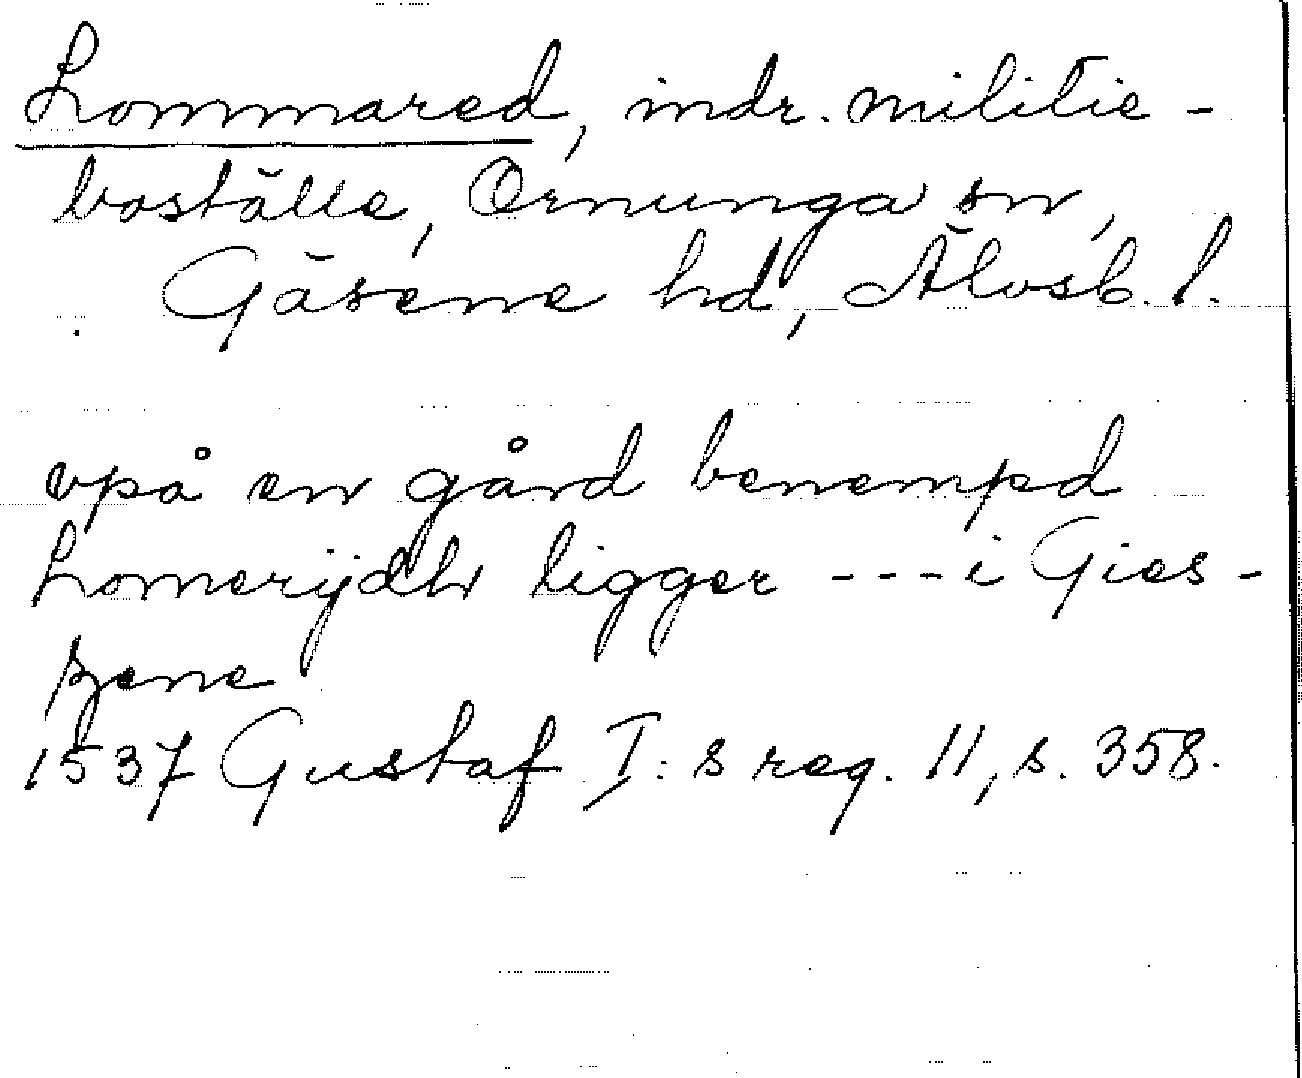 Lommared, indr. militie-
boställe, Ornunga sn,
Gäsene hd, Älvsb. l.
vpå en gård benempd
Lomerijdh ligger ---i Gies-
zene
1537 Gustaf I:s reg. 11, s. 358.